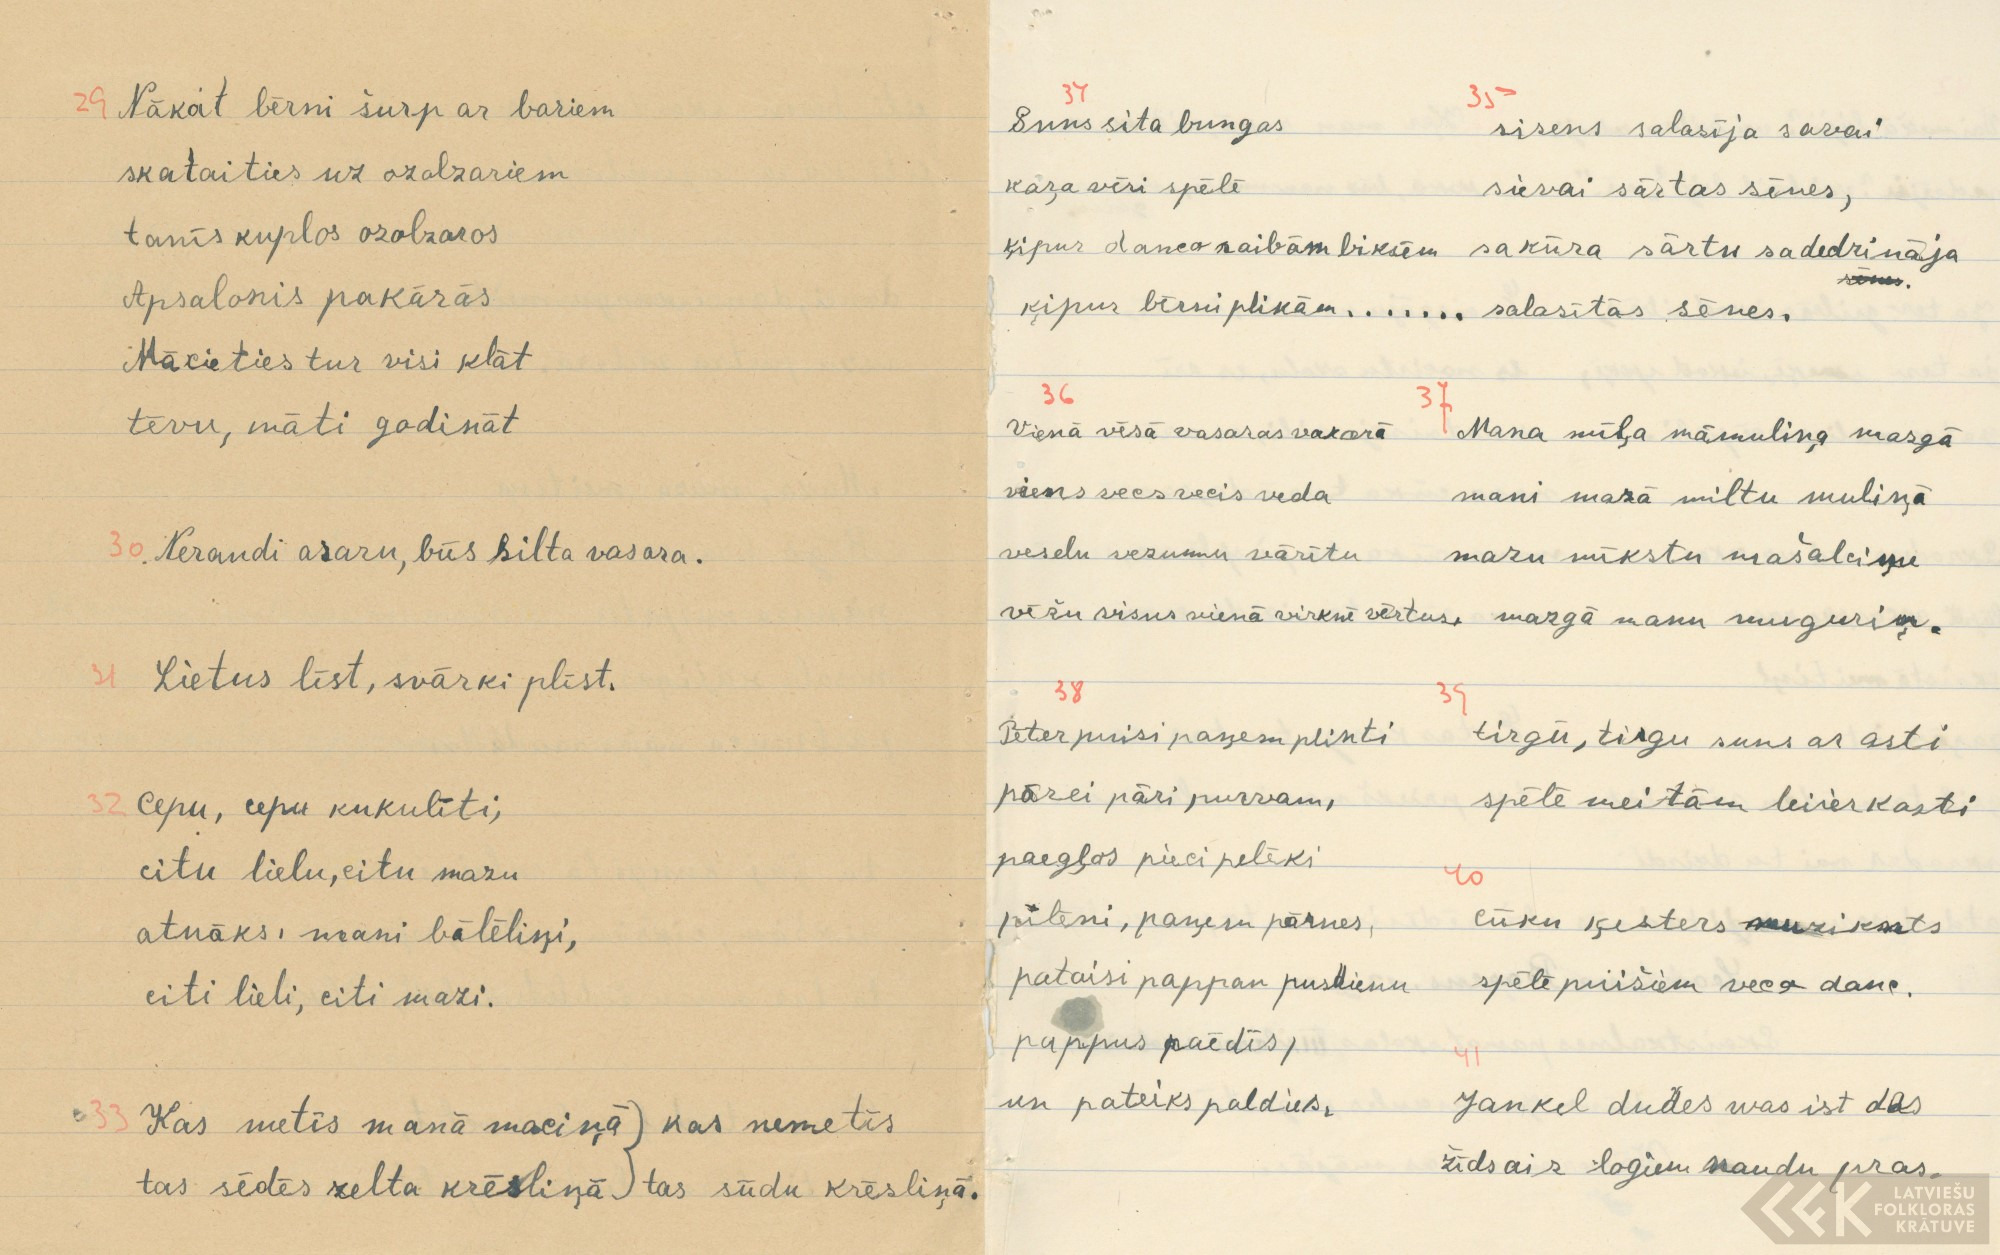 29 Nākat bērni šurp ar bariem
skataities uz ozolzariem
tanīs kuplos ozolzaros
Apsalonis pakārās
Mācieties tur visi klāt
tēvu, māti godināt
30. Neraudi azaru, būs silta vasara.
31 Lietus līst, svārki plīst.
32 Cepu, cepu kukulīti,
citu lielu, citu mazu
atnāks, mani bālēliņi,
citi lieli, citi mazi.
33 Kas metīs manā maciņā) kas nemetīs
tas sēdēs zelta krēsliņā) tas sūdu krēsliņā.
34
Suns sita bungas
kaza vēri spēlē
ķipur danco raibām biksēm
ķipur bērni plikām.......
35
sisens salasīja savai
sievai sārtas sēnes,
sakūra sārtu sadedzināja
salasītās sēnes.
36
Vienā vēsā vasaras vakarā
viens vecs vecis veda
veselu vezumu vārītu
vēžu visus vienā virknē vērtus.
37
Mana mīļa māmuliņa mazgā
mani mazā miltu muliņā
mazu mīkstu mašalciņu
mazgā manu muguriņ.
38
Pēter puisi paņem plinti
pārei pāri purvam,
paegļos pieci pelēki
pīlēni, paņem pārnes,
pataisi pappan pusdienu
pappus paēdīs,
un pateiks paldies.
39
tirgū, tirgu suns ar asti
spēlē meitām leijerkasti
40
cūku ķesters muzikants
spēlē puišiem veco danc.
41
Jankel dudes was ist das
žīds aiz logiem naudu pras.
LATVIEŠU
FOLKLORAS
KRĀTUVE